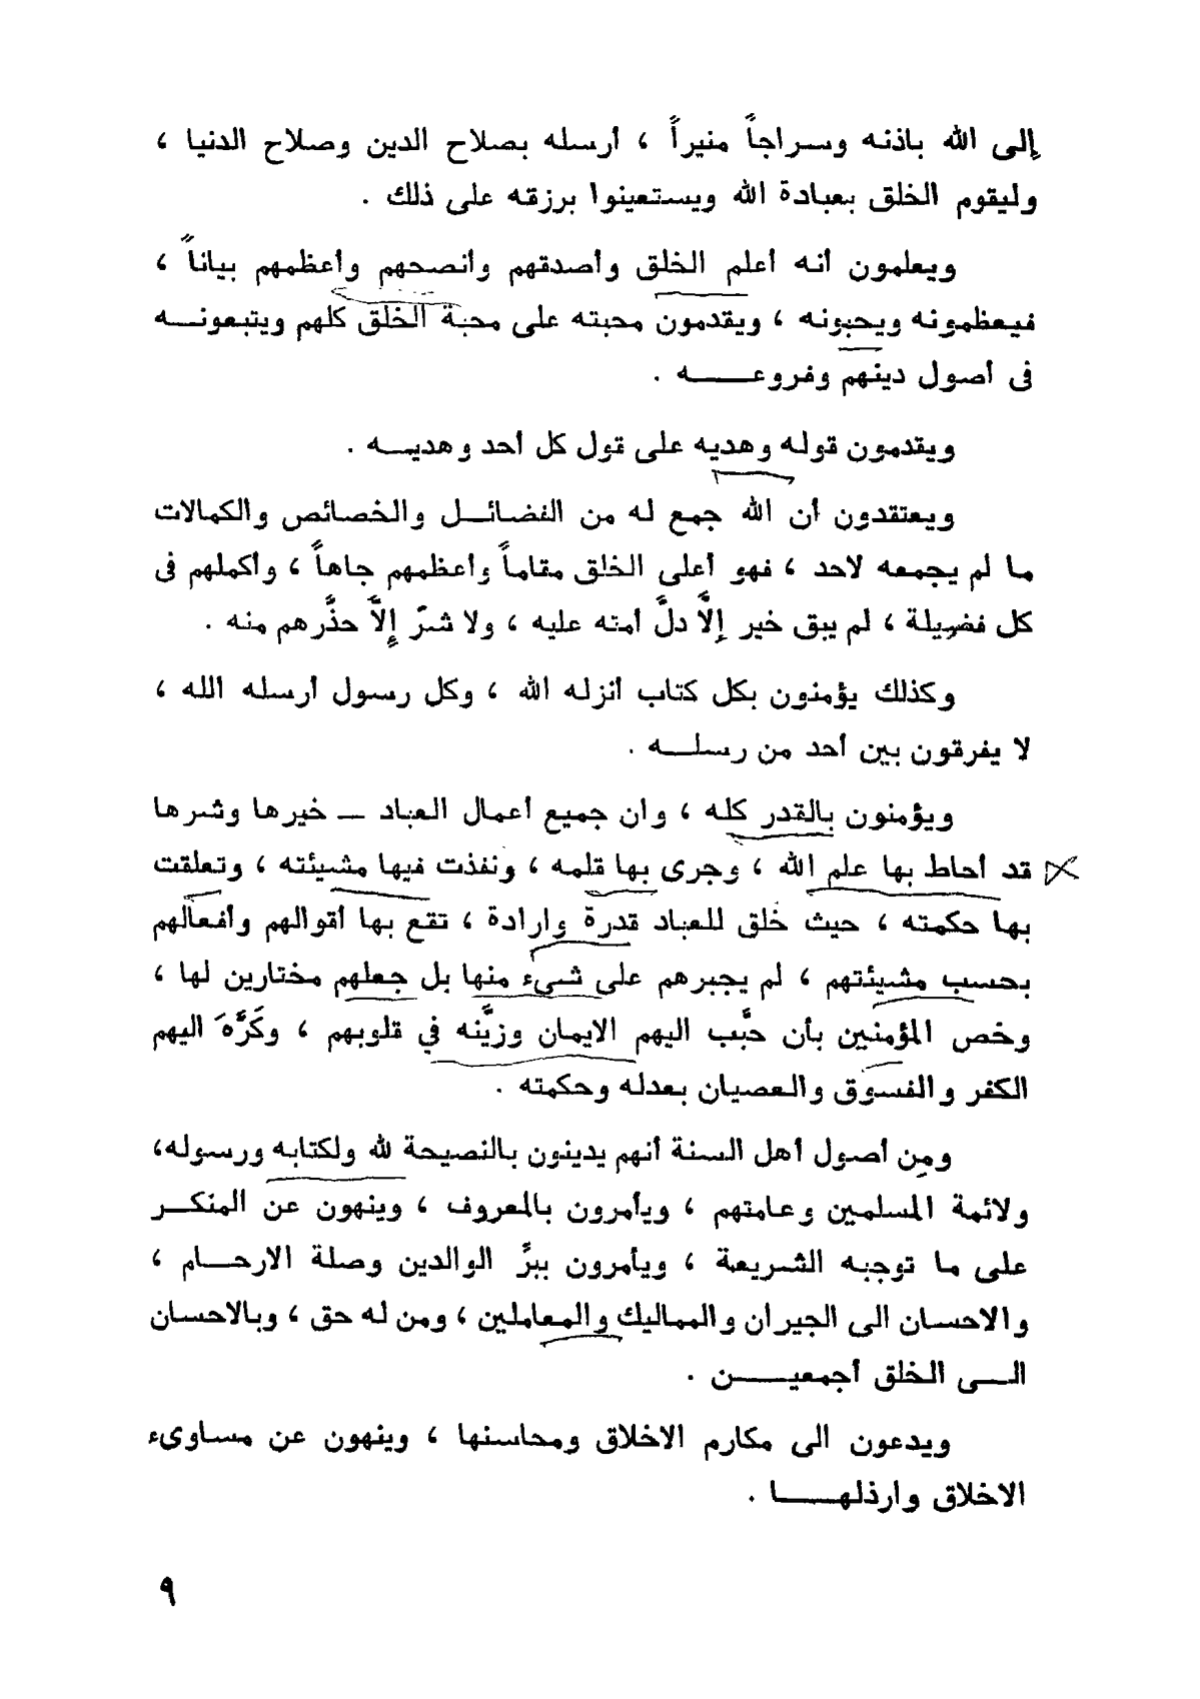 إلى الله باذنه وسراجاً منيراً ، أرسله بصلاح الدين وصلاح الدنيا ،
وليقوم الخلق بعبادة الله ويستعينوا برزقه على ذلك .
ويعلمون أنه أعلم الخلق وأصدقهم وأنصحهم وأعظمهم بياناً ،
فيعظمونه ويحبونه ، ويقدمون محبته على محبة الخلق كلهم ويتبعونه
فى أصول دينهم وفروعه .
ويقدمون قوله وهديه على قول كل أحد وهديه .
ويعتقدون أن الله جمع له من الفضائل والخصائص والكمالات
ما لم يجمعه لاحد ، فهو أعلى الخلق مقاماً وأعظمهم جاهاً ، وأكملهم فى
كل فضيلة ، لم يبق خير إلاَّ دلَّ أمته عليه ، ولا شرّ إلاَّ حذَّرهم منه .
وكذلك يؤمنون بكل كتاب أنزله الله ، وكل رسول أرسله الله ،
لا يفرقون بين أحد من رسله .
ويؤمنون بالقدر كله ، وان جميع أعمال العباد – خيرها وشرها
قد أحاط بها علم الله ، وجرى بها قلمه ، ونفذت فيها مشيئته ، وتعلقت
بها حكمته ، حيث خلق للعباد قدرة وارادة ، تقع بها أقوالهم وأفعالهم
بحسب مشيئتهم ، لم يجبرهم على شىء منها بل جعلهم مختارين لها ،
وخص المؤمنين بأن حبَّب اليهم الايمان وزيَّنه في قلوبهم ، وكَرَّهَ اليهم
الكفر والفسوق والعصيان بعدله وحكمته .
ومن أصول أهل السنة أنهم يدينون بالنصيحة لله ولكتابه ورسوله،
ولائمة المسلمين وعامتهم ، ويأمرون بالمعروف ، وينهون عن المنكر
على ما توجبه الشريعة ، ويأمرون ببرَّ الوالدين وصلة الارحام ،
والاحسان الى الجيران والمماليك والمعاملين ، ومن له حق ، وبالاحسان
الى الخلق أجمعين .
ويدعون الى مكارم الاخلاق ومحاسنها ، وينهون عن مساوىء
الاخلاق وارذلها .
٩